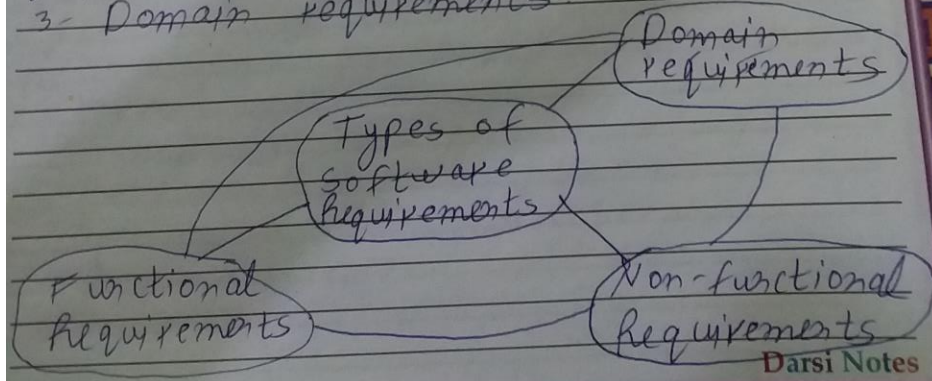 3- Domain requirements.
Domain
requirements
Types of
software
Requirements
Functional
Requirements
Non-functional
Requirements
Darsi Notes